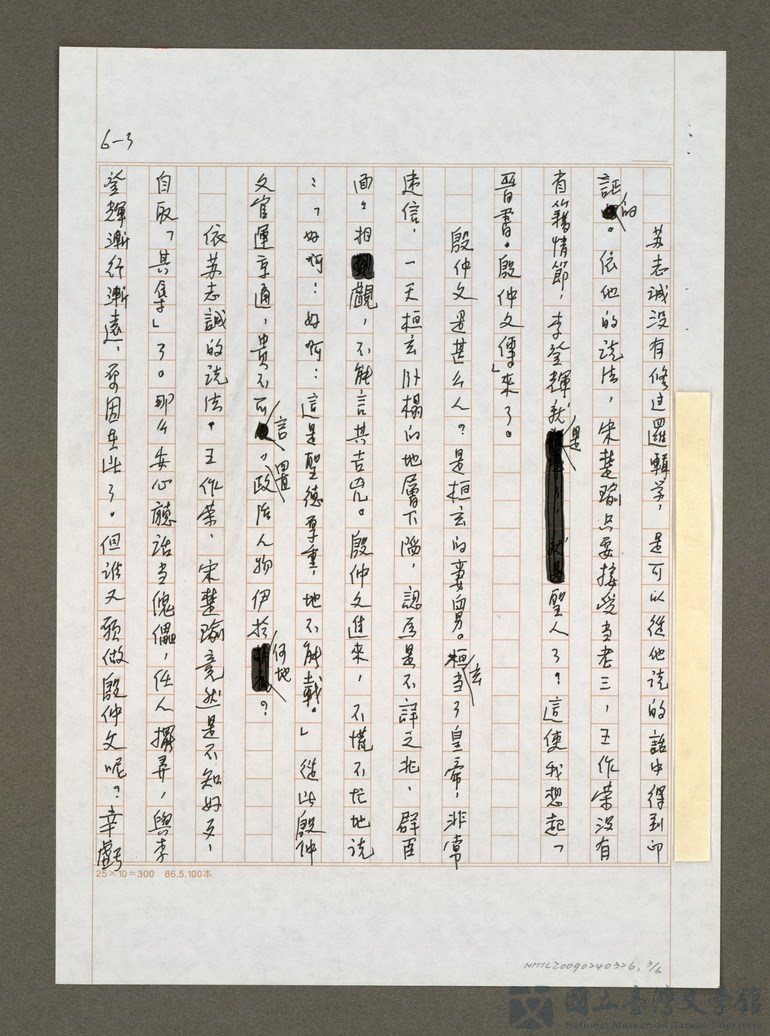 6-3
苏志誠没有修过邏輯学，是可以從他说的話中得到印
証的。依他的说法，宋楚瑜只要接受当老三，王作荣没有
省籍情節，李登輝就是聖人了？這使我想起「
晋書。殷仲文傳」來了。
殷仲文是甚么人？是桓玄的妻舅。桓玄当了皇帝，非常
迷信，一天桓玄卧榻的地層下陷，認為是不詳之兆，群臣
面面相覷，不能言其吉凶。殷仲文進來，不慌不忙地说
：「好啊！好啊！這是聖德厚重，地不能載。」從此殷仲
文官運亨通，貴不可言，政治人物伊於何地？
依苏志誠的说法，王作荣、宋楚瑜竟然是不知好歹，
自取「其隻」了。那么安心聽话当傀儡，任人擺弄，與李
登輝漸行漸遠，原因在此了。但誰又願做殷仲文呢？幸虧
25×10＝300 86.5.100本
NMTL20090240326, 3/6
國立臺灣文學館
National Museum of Taiwan Literature